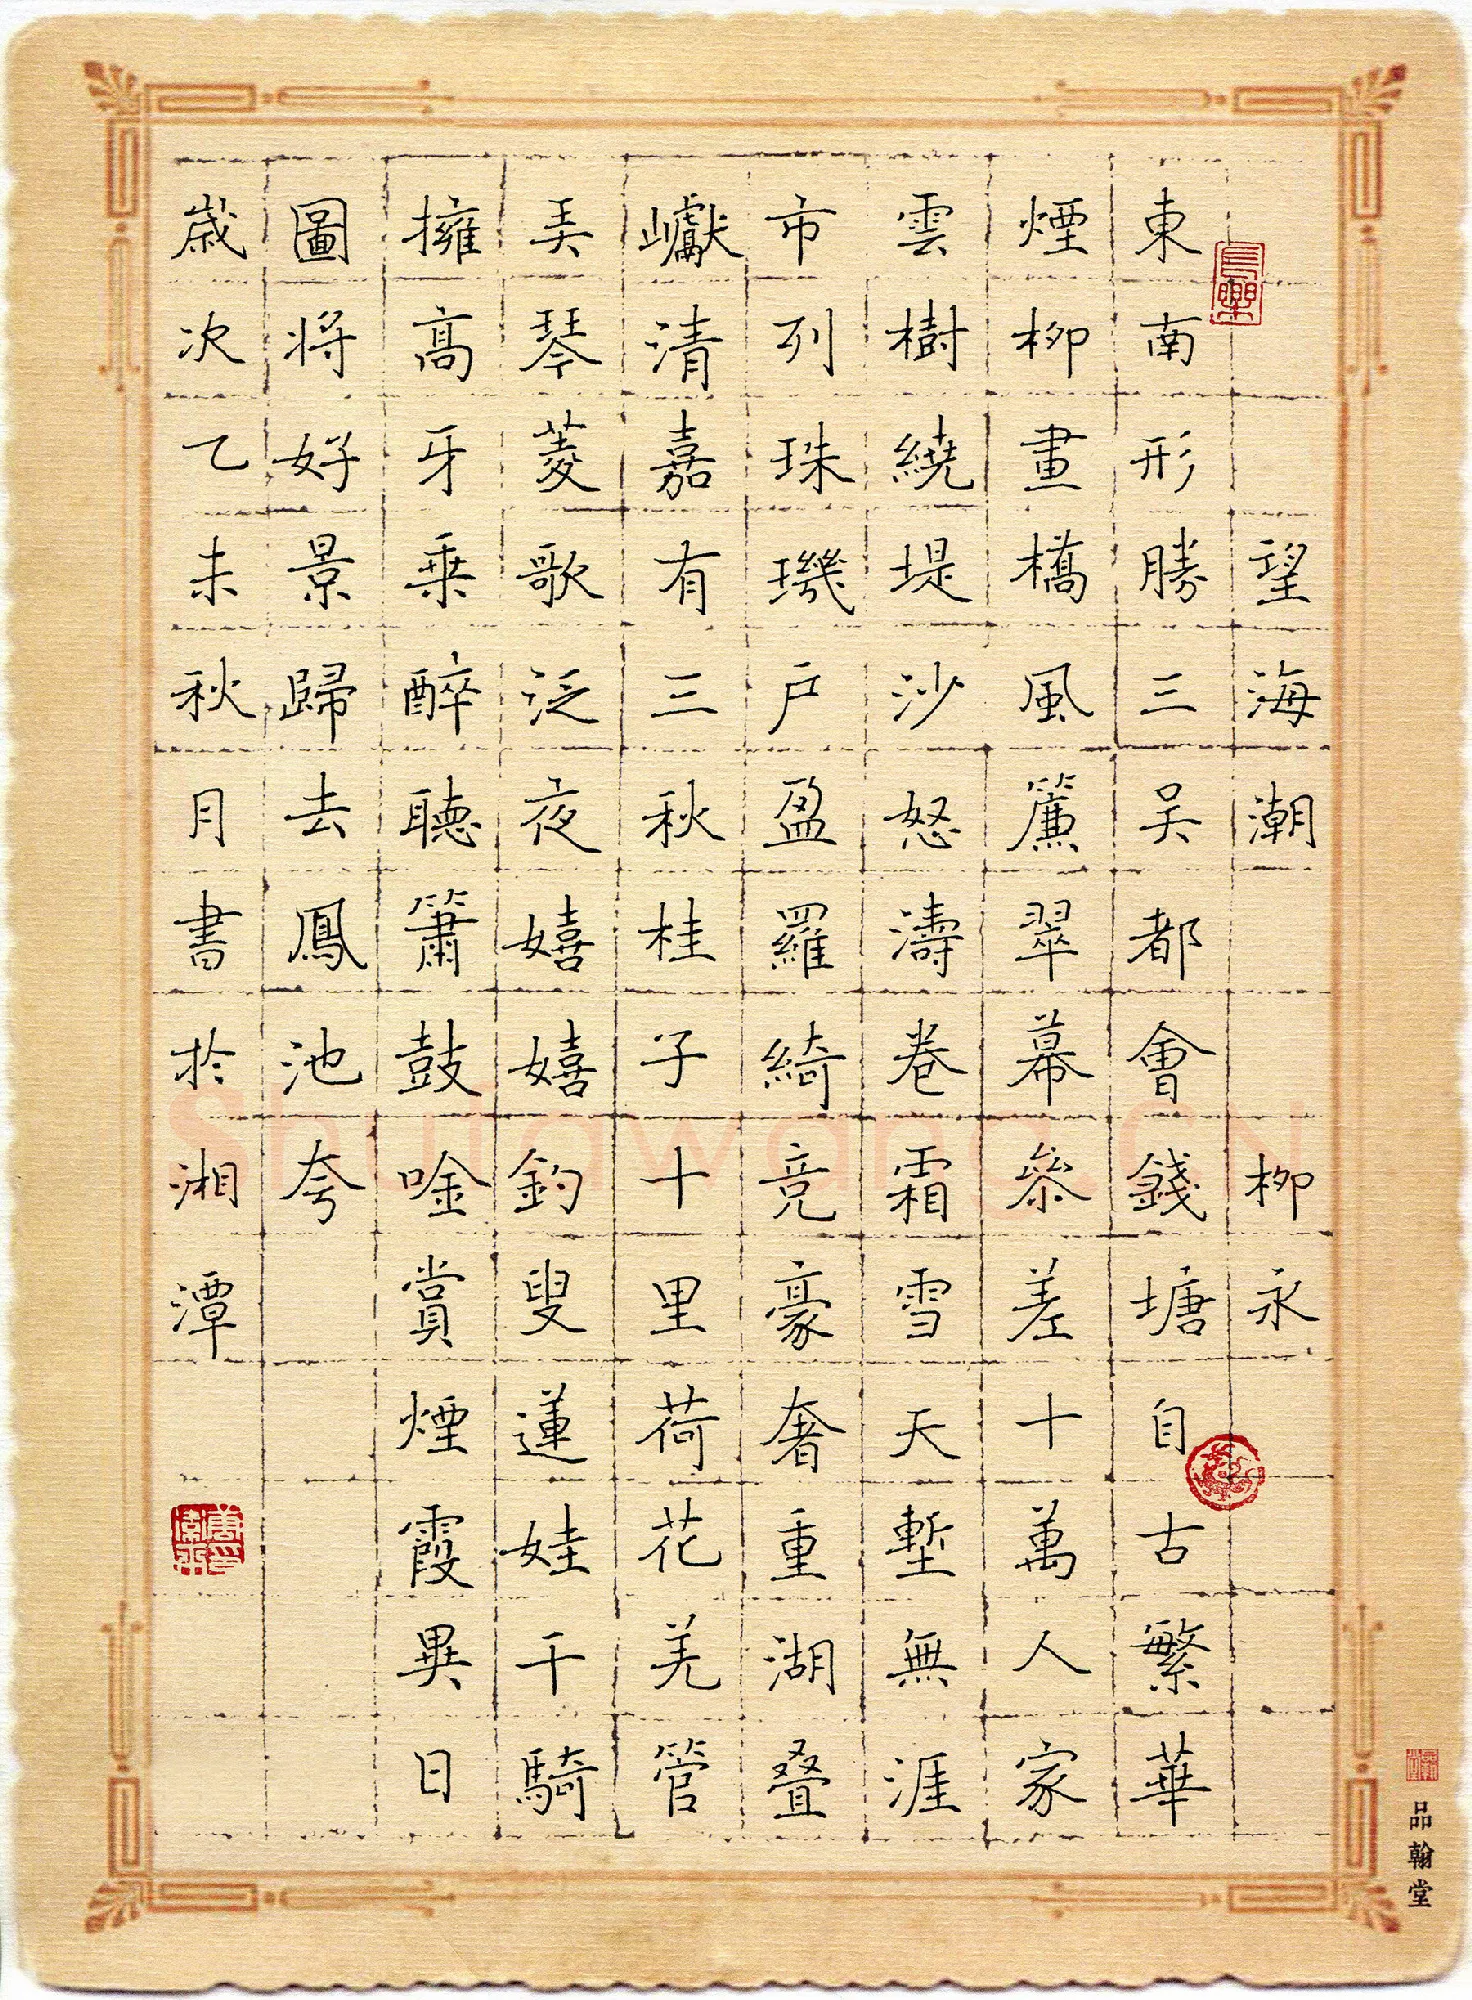 望海潮 柳永
東南形勝三吴都會錢塘自古繁華
煙柳畫橋風簾翠幕叅差十萬人家
雲樹繞堤沙怒濤卷霜雪天塹無涯
市列珠璣户盈羅綺竞豪奢重湖叠
巘清嘉有三秋桂子十里荷花羌管
弄琴菱歌泛夜嬉嬉釣叟蓮娃千騎
擁高牙乗醉聽簫鼓唫賞煙霞異日
圖将好景歸去鳳池夸
歲次乙未秋月書於湘潭
品翰堂
Shufawang.CN